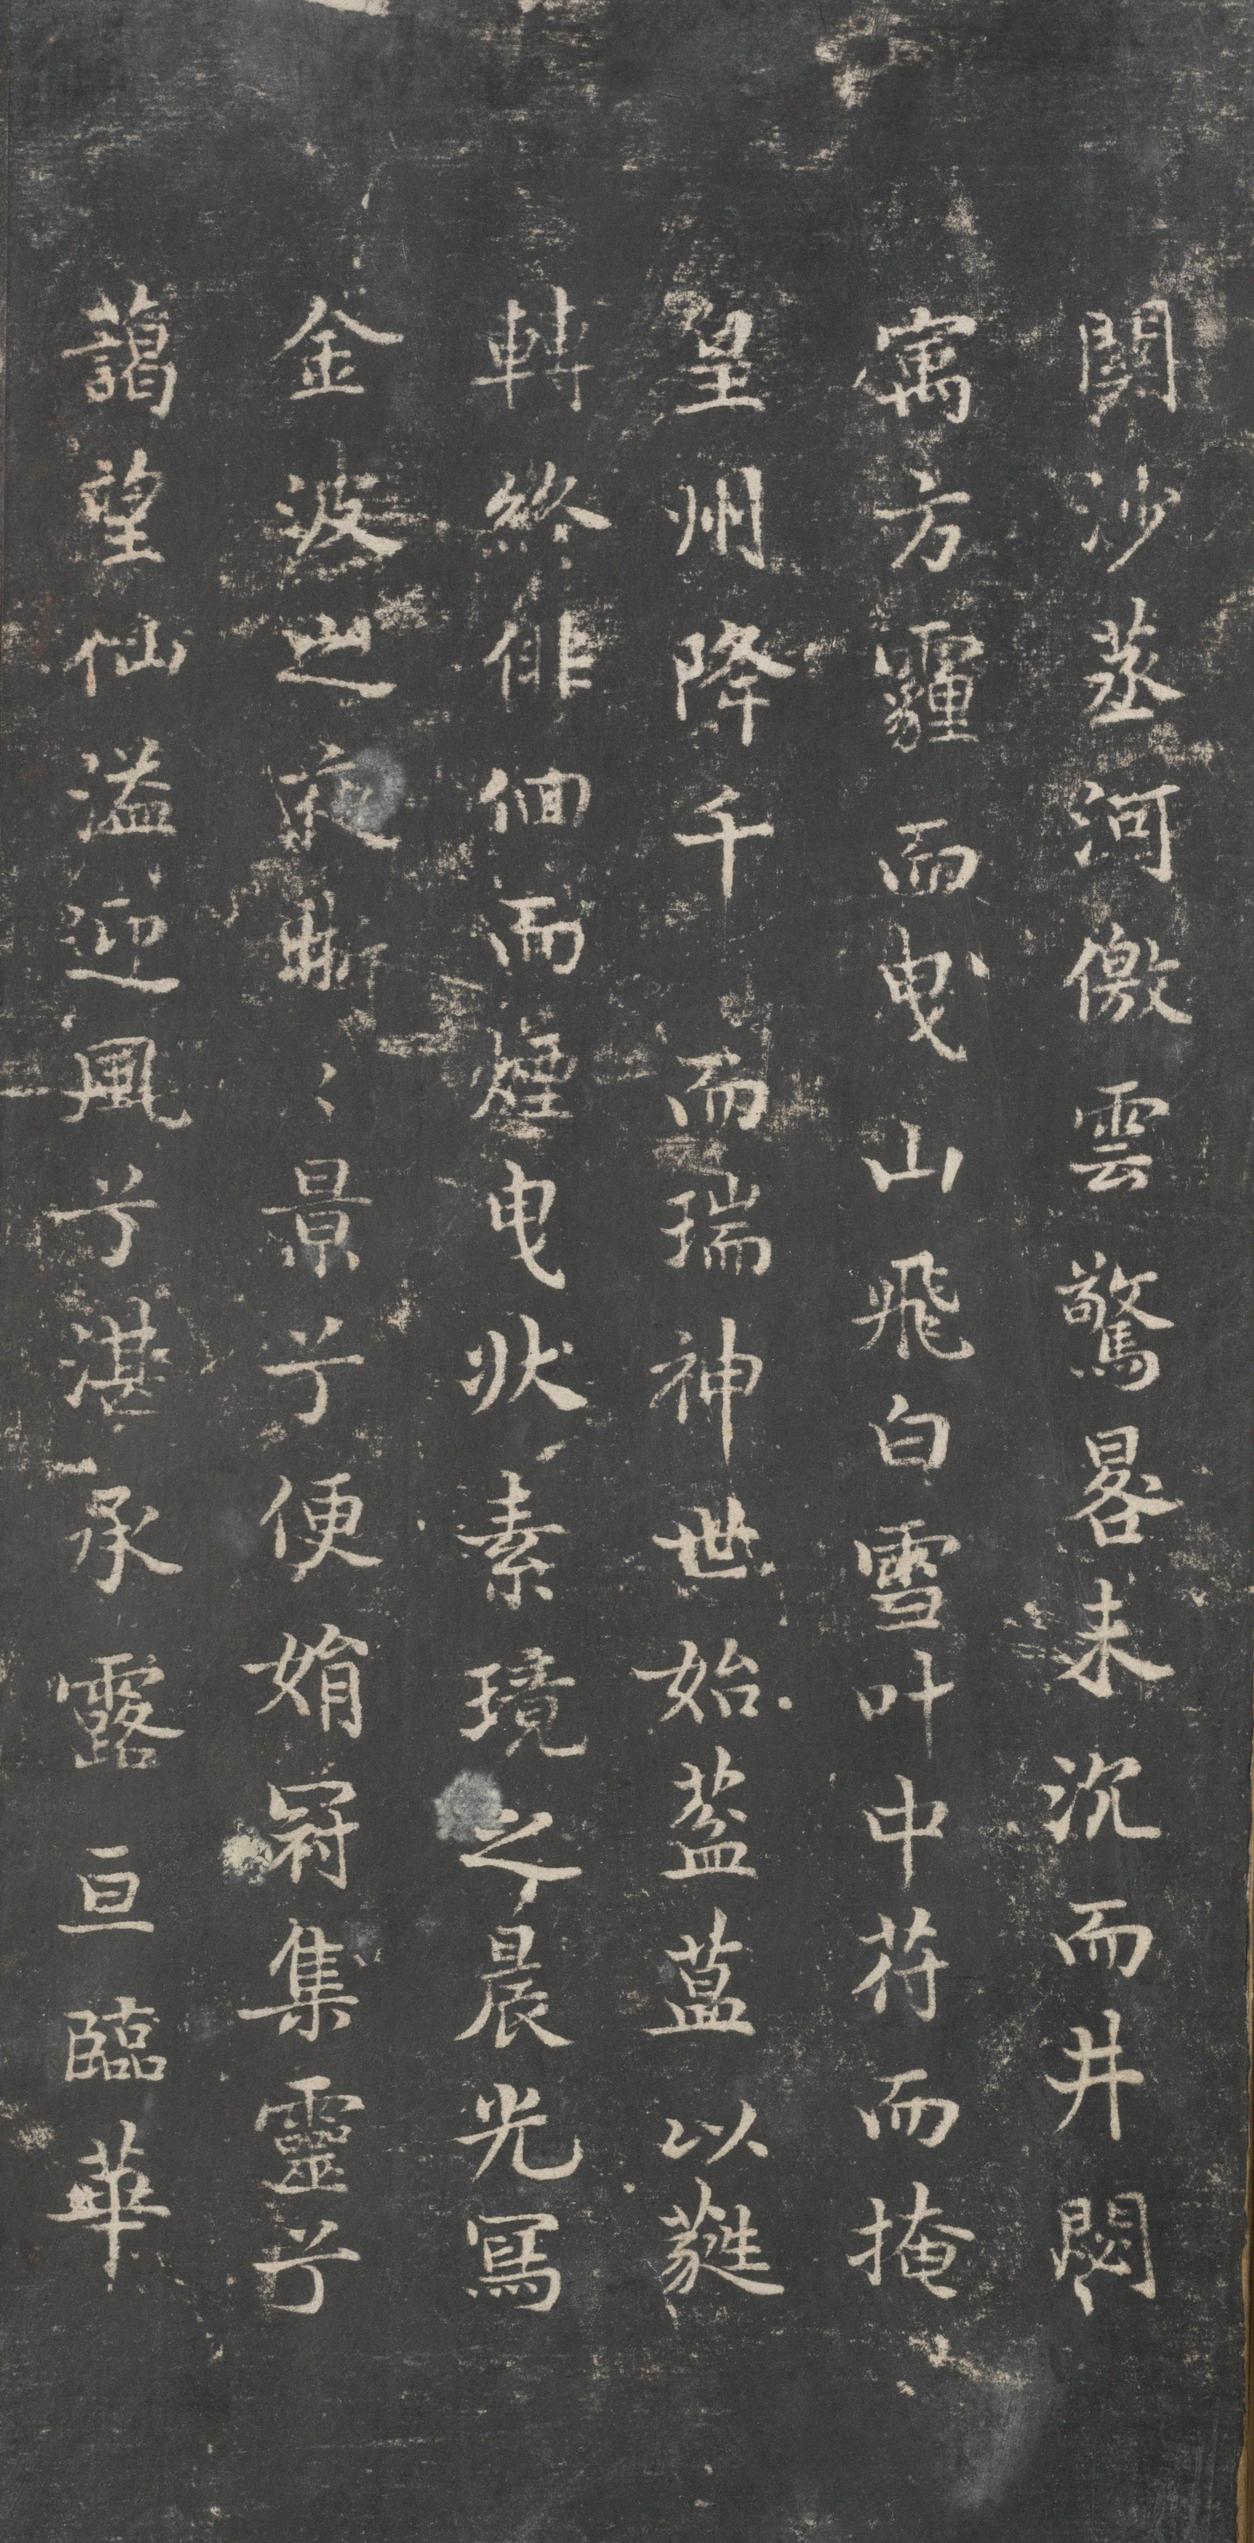 沙蒸河儌雲驚晷未沉而井閟
寓方霾而曳山飛白雪叶中苻而掩
皇州降千而瑞神世始葐蒀以蕤
轉終俳佪而煙曳狀素璄之晨光寫
金波之夜晰〻景兮便娟冠集靈兮
藹望仙溢迎風兮湛承露亘臨華